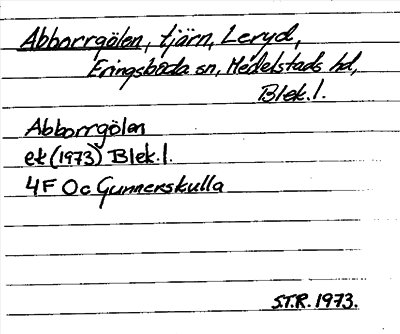 Abborrgölen, tjärn, Leryd,
Eringsboda sn, Medelstads hd,
Blek.l.
Abborrgölen
ek (1973) Blek.l.
4F Oc Gunnerskulla
S.T.R. 1973.